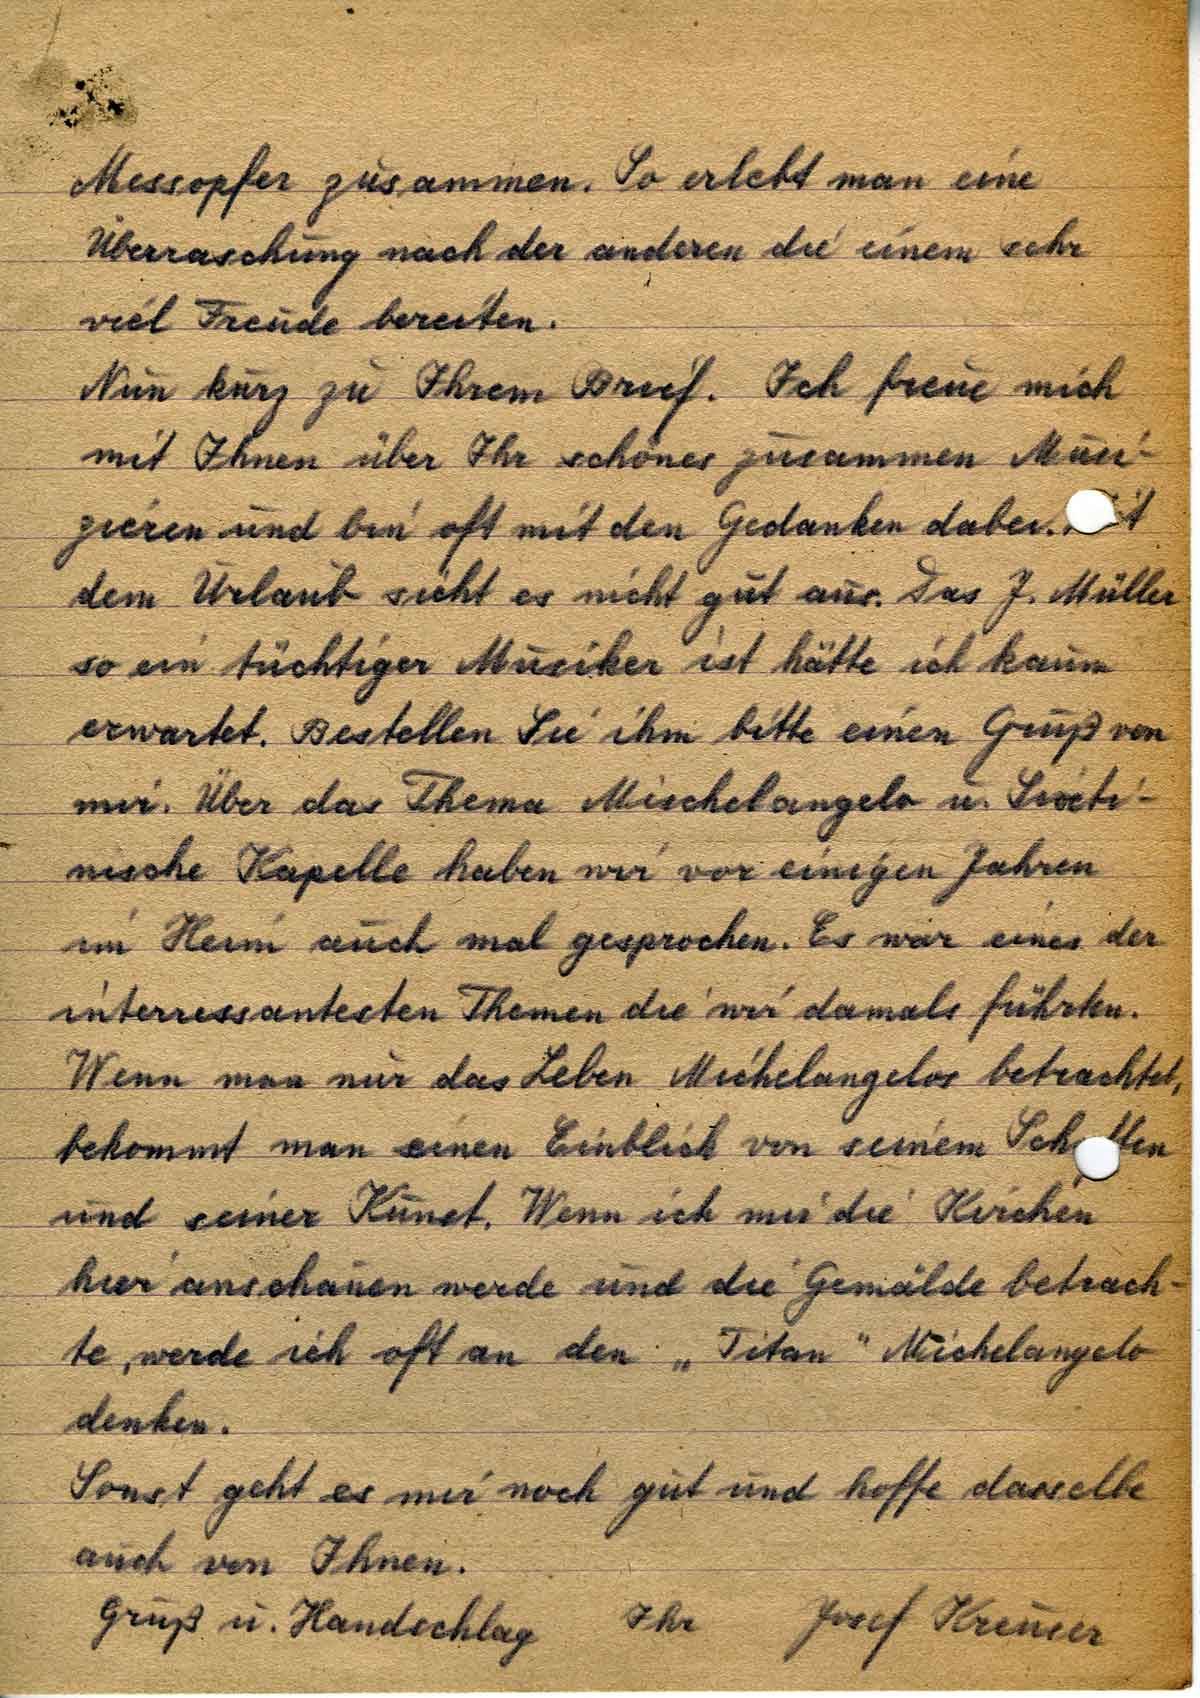 Messopfer zusammen. So erlebt man eine
Überraschung nach der anderen die einem sehr
viel Freude bereiten.
Nun kurz zu Ihrem Brief. Ich freue mich
mit Ihnen über Ihr schönes zusammen Musi-
zieren und bin oft mit den Gedanken dabei.
dem Urlaub sieht es nicht gut aus. Das J. Müller
so ein tüchtiger Musiker ist hätte ich kaum
erwartet. Bestellen Sie ihm bitte einen Gruß von
mir. Über das Thema Mischelangelo u. Sixti-
nische Kapelle haben wir vor einigen Jahren
im Heim auch mal gesprochen. Es war eines der
interressantesten Themen die wir damals führten.
Wenn man nur das Leben Michelangelos betrachtet,
bekommt man einen Einblick von seinem
und seiner Kunst. Wenn ich mir die Kirchen
hier anschauen werde und die Gemälde betrach-
te, werde ich oft an den „Titan" Michelangelo
denken.
Sonst geht es mir noch gut und hoffe dasselbe
auch von Ihnen.
Gruß u. Handschlag Ihr Josef Kreuser